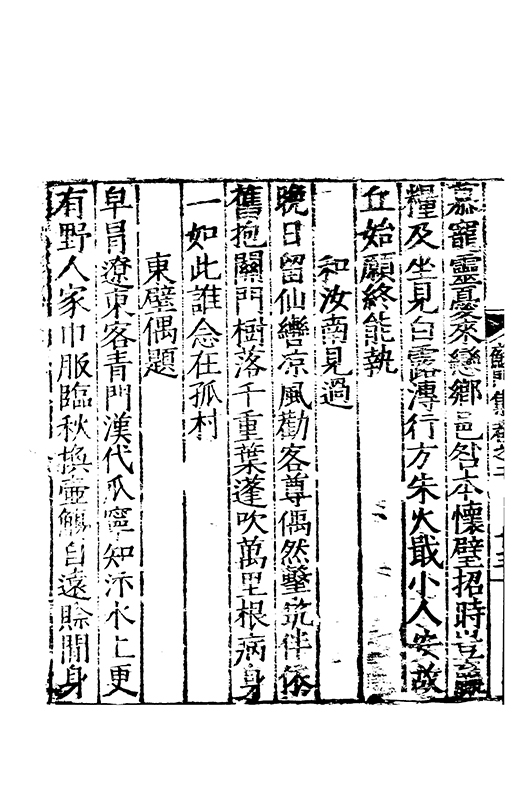 慕寵靈憂來戀鄉邑咎本懷璧招時豈
糧及坐見白露漙行方朱火戢小人安故
丘始願終能執
和汝南見過
晚日留仙轡凉風勸客尊偶然鑿坏伴依
舊抱關門樹落千重葉蓬吹萬里根病身
一如此誰念在孤村
東壁偶題
早冐遼東客青門漢代瓜寧知沶水上更
有野人家巾服臨秋換壺觴自遠賒閒身